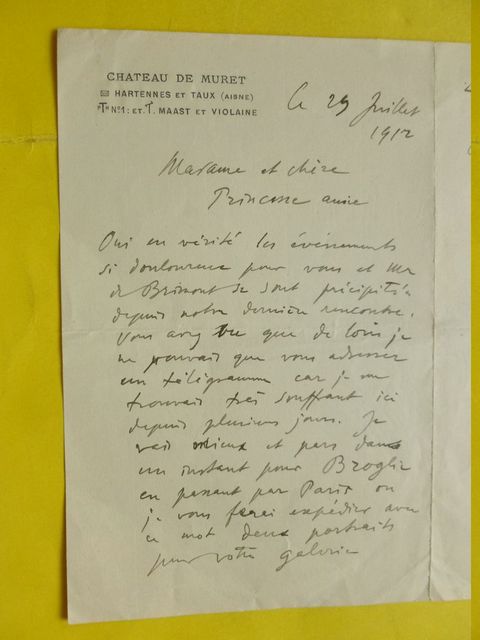 CHATEAU DE MURET
HARTENNES ET TAUX (AISNE)
Tn No1: ET T. MAAST ET VIOLAINE
Le 29 Juillet
1912
Madame et chère
Princesse amie
Oui en vérité les événements
si douloureux pour vous et Mr
de Brimont se sont précipités
depuis notre dernière rencontre.
Vous avez vu que de loin je
ne pouvais que vous adresser
un télégramme car je me
trouvais très souffrant ici
depuis plusieurs jours. Je
vais mieux et pars dans
un instant pour Broglie
en passant par Paris où
je vous ferai expédier avec
ce mot deux portraits
pour votre galerie